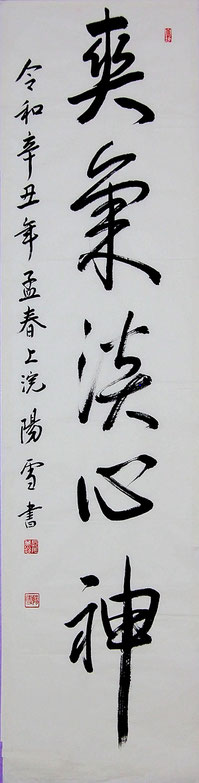 爽氣淡心神
令和辛丑年孟春上浣陽雪書